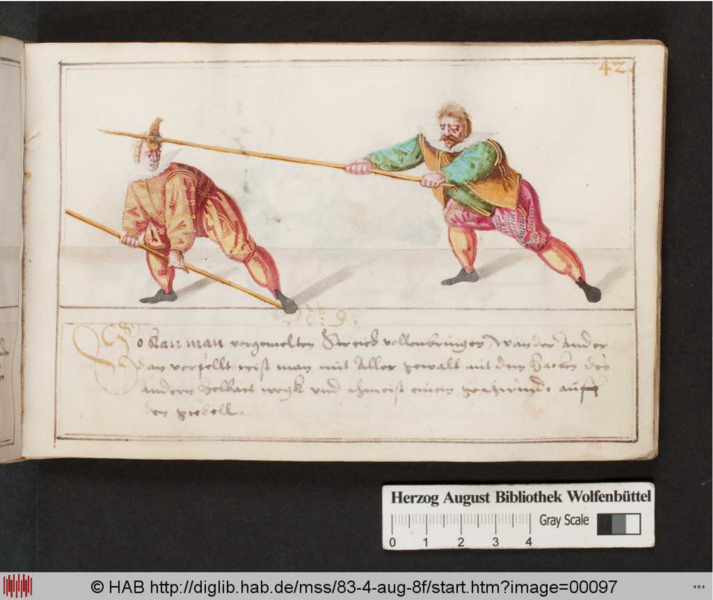 42
No: 9.
So kan man vorgemelten Streich vollenbringen wan der ander
dan verfellt reist man mit aller gewalt mit dem Hacken des
andern Helbart wegk und schmeist einen geschwinde auff
den
Herzog August Bibliothek Wolfenbüttel
Gray Scale
0 1 2 3 4
© HAB http://diglib.hab.de/mss/83-4-aug-8f/start.htm?image=00097